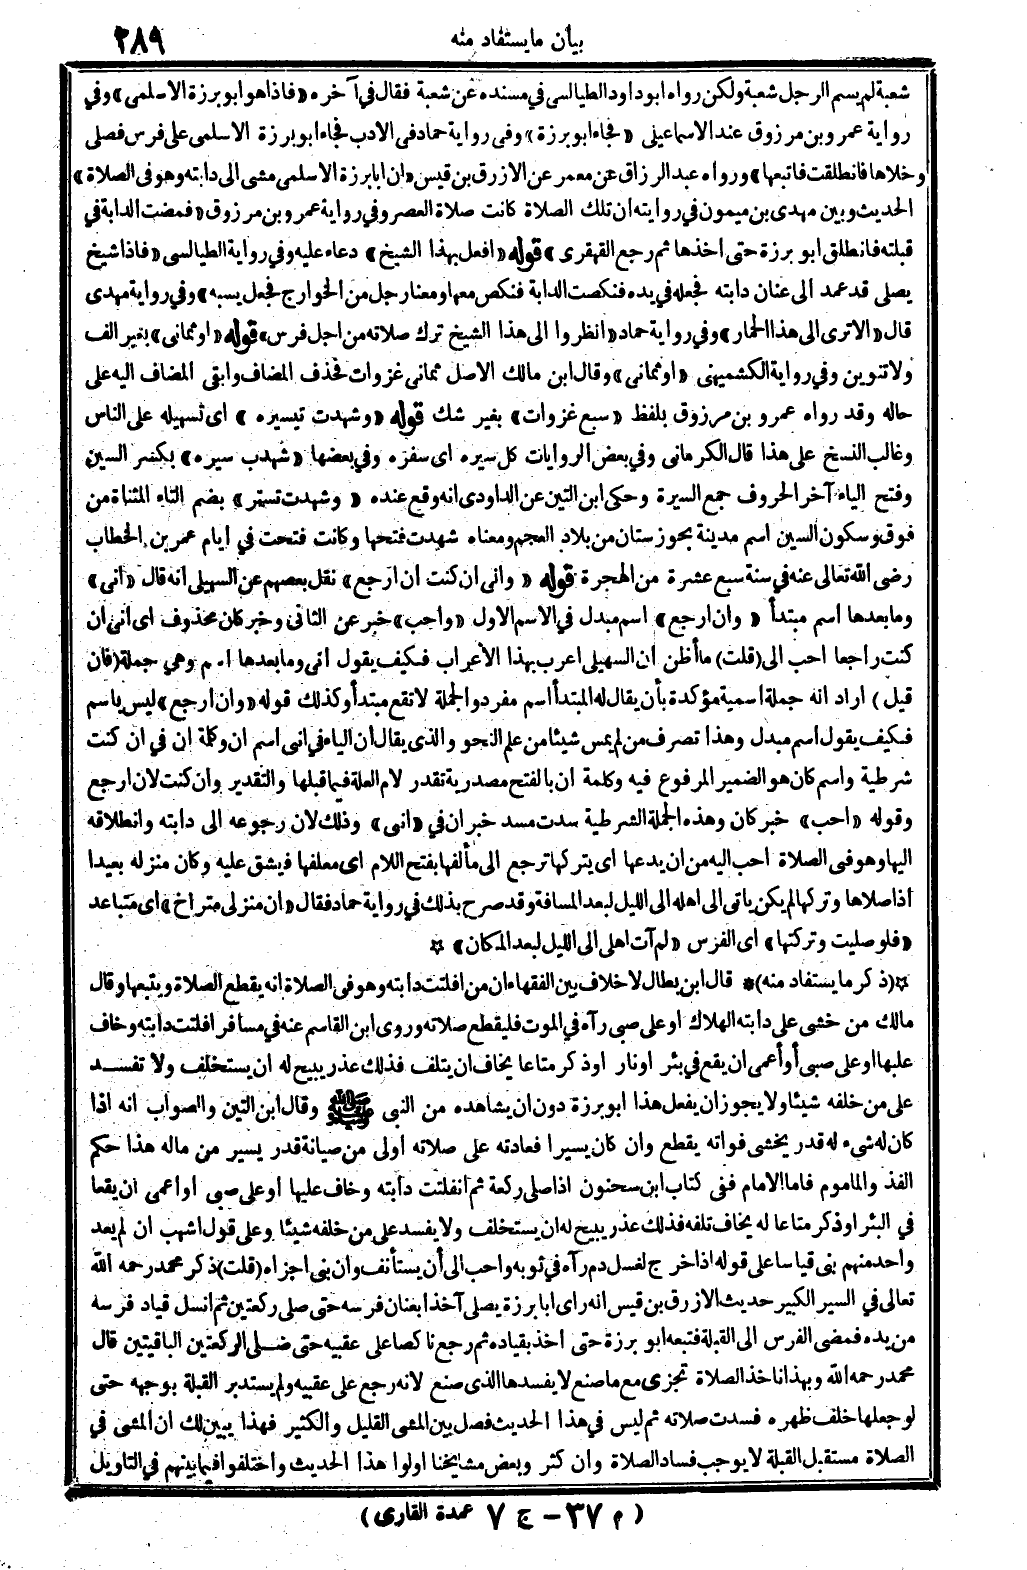 بيان مايستفاد منه
٢٨٩
شعبة لم يسم الرجل شعبة ولكن رواه ابو داود الطيالسى فى مسنده عن شعبة فقال فى آخره «فاذا هو ابو برزة الاسلمى» وفى
رواية عمرو بن مرزوق عند الاسماعيلى «فجاء ابو برزة» وفى رواية حماد فى الادب فجاء ابو برزة الاسلمى على فرس فصلى
وخلاها فانطلقت فاتبعها» ورواه عبد الرزاق عن معمر عن الازرق بن قيس «ان ابا برزة الاسلمى مشى الى دابته وهو فى الصلاة»
الحديث وبين مهدى بن ميمون فى روايته ان تلك الصلاة كانت صلاة العصر وفى رواية عمرو بن مرزوق «فمضت الدابة فى
قبلته فانطلق ابو برزة حتى اخذها ثم رجع القهقرى» قوله «افعل بهذا الشيخ» دعاء عليه وفى رواية الطيالسى «فاذا شيخ
يصلى قد عمد الى عنان دابته فجعله فى يده فنكصت الدابة فنكص معها ومعنا رجل من الخوارج فجعل يسبه» وفى رواية مهدى
قال «الا ترى الى هذا الحمار» وفى رواية حماد «انظروا الى هذا الشيخ ترك صلاته من اجل فرس» قوله «او ثمانى» بغير الف
ولا تنوين وفى رواية الكشميهنى «او ثمانى» وقال ابن مالك الاصل ثمانى غزوات فحذف المضاف وابقى المضاف اليه على
حاله وقد رواه عمرو بن مرزوق بلفظ «سبع غزوات» بغير شك قوله «وشهدت تيسيره» اى تسهيله على الناس
وغالب النسخ على هذا قال الكرمانى وفى بعض الروايات كل سيره اى سفره وفى بعضها «شهدب سيره» بكسر السين
وفتح الياء آخر الحروف جمع السيرة وحكى ابن التين عن الداودى انه وقع عنده «وشهدت تستر» بضم التاء المثناة من
فوق وسكون السين اسم مدينة بخوزستان من بلاد العجم ومعناه شهدت فتحها وكانت فتحت فى ايام عمر بن الخطاب
رضى الله تعالى عنه فى سنة سبع عشرة من الهجرة قوله «وانى ان كنت ان ارجع» نقل بعضهم عن السهيلى انه قال «أنى»
وما بعدها اسم مبتدأ «وان ارجع» اسم مبدل فى الاسم الاول «واحب» خبر عن الثانى وخبر كان محذوف اى انى ان
كنت راجعا احب الى (قلت) ما أظن أن السهيلى اعرب بهذا الأعراب فكيف يقول انى وما بعدها اسم وهى جملة (فان
قيل) اراد انه جملة اسمية مؤكدة بأن يقال له المبتدأ اسم مفرد والجملة لا تقع مبتدأ وكذلك قوله «وان ارجع» ليس باسم
فكيف يقول اسم مبدل وهذا تصرف من لم يمس شيئا من علم النحو والذى يقال أن الياء فى انى اسم ان وكلمة ان فى ان كنت
شرطية واسم كان هو الضمير المرفوع فيه وكلمة ان بالفتح مصدرية تقدر لام العلة فيما قبلها والتقدير وان كنت لان ارجع
وقوله «احب» خبر كان وهذه الجملة الشرطية سدت مسد خبر ان فى «انى» وذلك لان رجوعه الى دابته وانطلاقه
اليها وهو فى الصلاة احب اليه من ان يدعها اى يتركها ترجع الى مألفها بفتح اللام اى معلفها فيشق عليه وكان منزله بعيدا
اذا صلاها وتركها لم يكن ياتى الى اهله الى الليل لبعد المسافة وقد صرح بذلك فى رواية حماد فقال «ان منزلى متراخ» اى متباعد
«فلو صليت وتركتها» اى الفرس «لم آت اهلى الى الليل لبعد المكان» ☆
☆(ذكر ما يستفاد منه)* قال ابن بطال لا خلاف بين الفقهاء ان من افلتت دابته وهو فى الصلاة انه يقطع الصلاة ويتبعها وقال
مالك من خشى على دابته الهلاك او على صبى رآه فى الموت فليقطع صلاته وروى ابن القاسم عنه فى مسافر افلتت دابته وخاف
عليها او على صبى أو أعمى ان يقع فى بئر او نار او ذكر متاعا يخاف ان يتلف فذلك عذر يبيح له ان يستخلف ولا تفسد
على من خلفه شيئا ولا يجوز ان يفعل هذا ابو برزة دون ان يشاهده من النبى ﷺ وقال ابن التين والصواب انه اذا
كان له شىء له قدر يخشى فواته يقطع وان كان يسيرا فعادته على صلاته اولى من صيانة قدر يسير من ماله هذا حكم
الفذ والماموم فاما الامام ففى كتاب ابن سحنون اذا صلى ركعة ثم انفلتت دابته وخاف عليها او على صبى او اعمى ان يقعا
فى البئر او ذكر متاعا له يخاف تلفه فذلك عذر يبيح له ان يستخلف ولا يفسد على من خلفه شيئا وعلى قول اشهب ان لم يعد
واحد منهم بنى قياسا على قوله اذا خرج لغسل دم رآه فى ثوبه واحب الى أن يستأنف وان بنى اجزاه (قلت) ذكر محمد رحمه الله
تعالى فى السير الكبير حديث الازرق بن قيس انه راى ابا برزة يصلى آخذا بعنان فرسه حتى صلى ركعتين ثم انسل قياد فرسه
من يده فمضى الفرس الى القبلة فتبعه ابو برزة حتى اخذ بقياده ثم رجع ناكصا على عقبيه حتى صلى الركعتين الباقيتين قال
محمد رحمه الله وبهذا ناخذ الصلاة تجزى مع ما صنع لا يفسدها الذى صنع لانه رجع على عقبيه ولم يستدبر القبلة بوجهه حتى
لو جعلها خلف ظهره فسدت صلاته ثم ليس فى هذا الحديث فصل بين المشى القليل والكثير فهذا يبين لك ان المشى فى
الصلاة مستقبل القبلة لا يوجب فساد الصلاة وان كثر وبعض مشايخنا اولوا هذا الحديث واختلفوا فيما بينهم فى التاويل
(م ٣٧ – ج ٧ عمدة القارى)